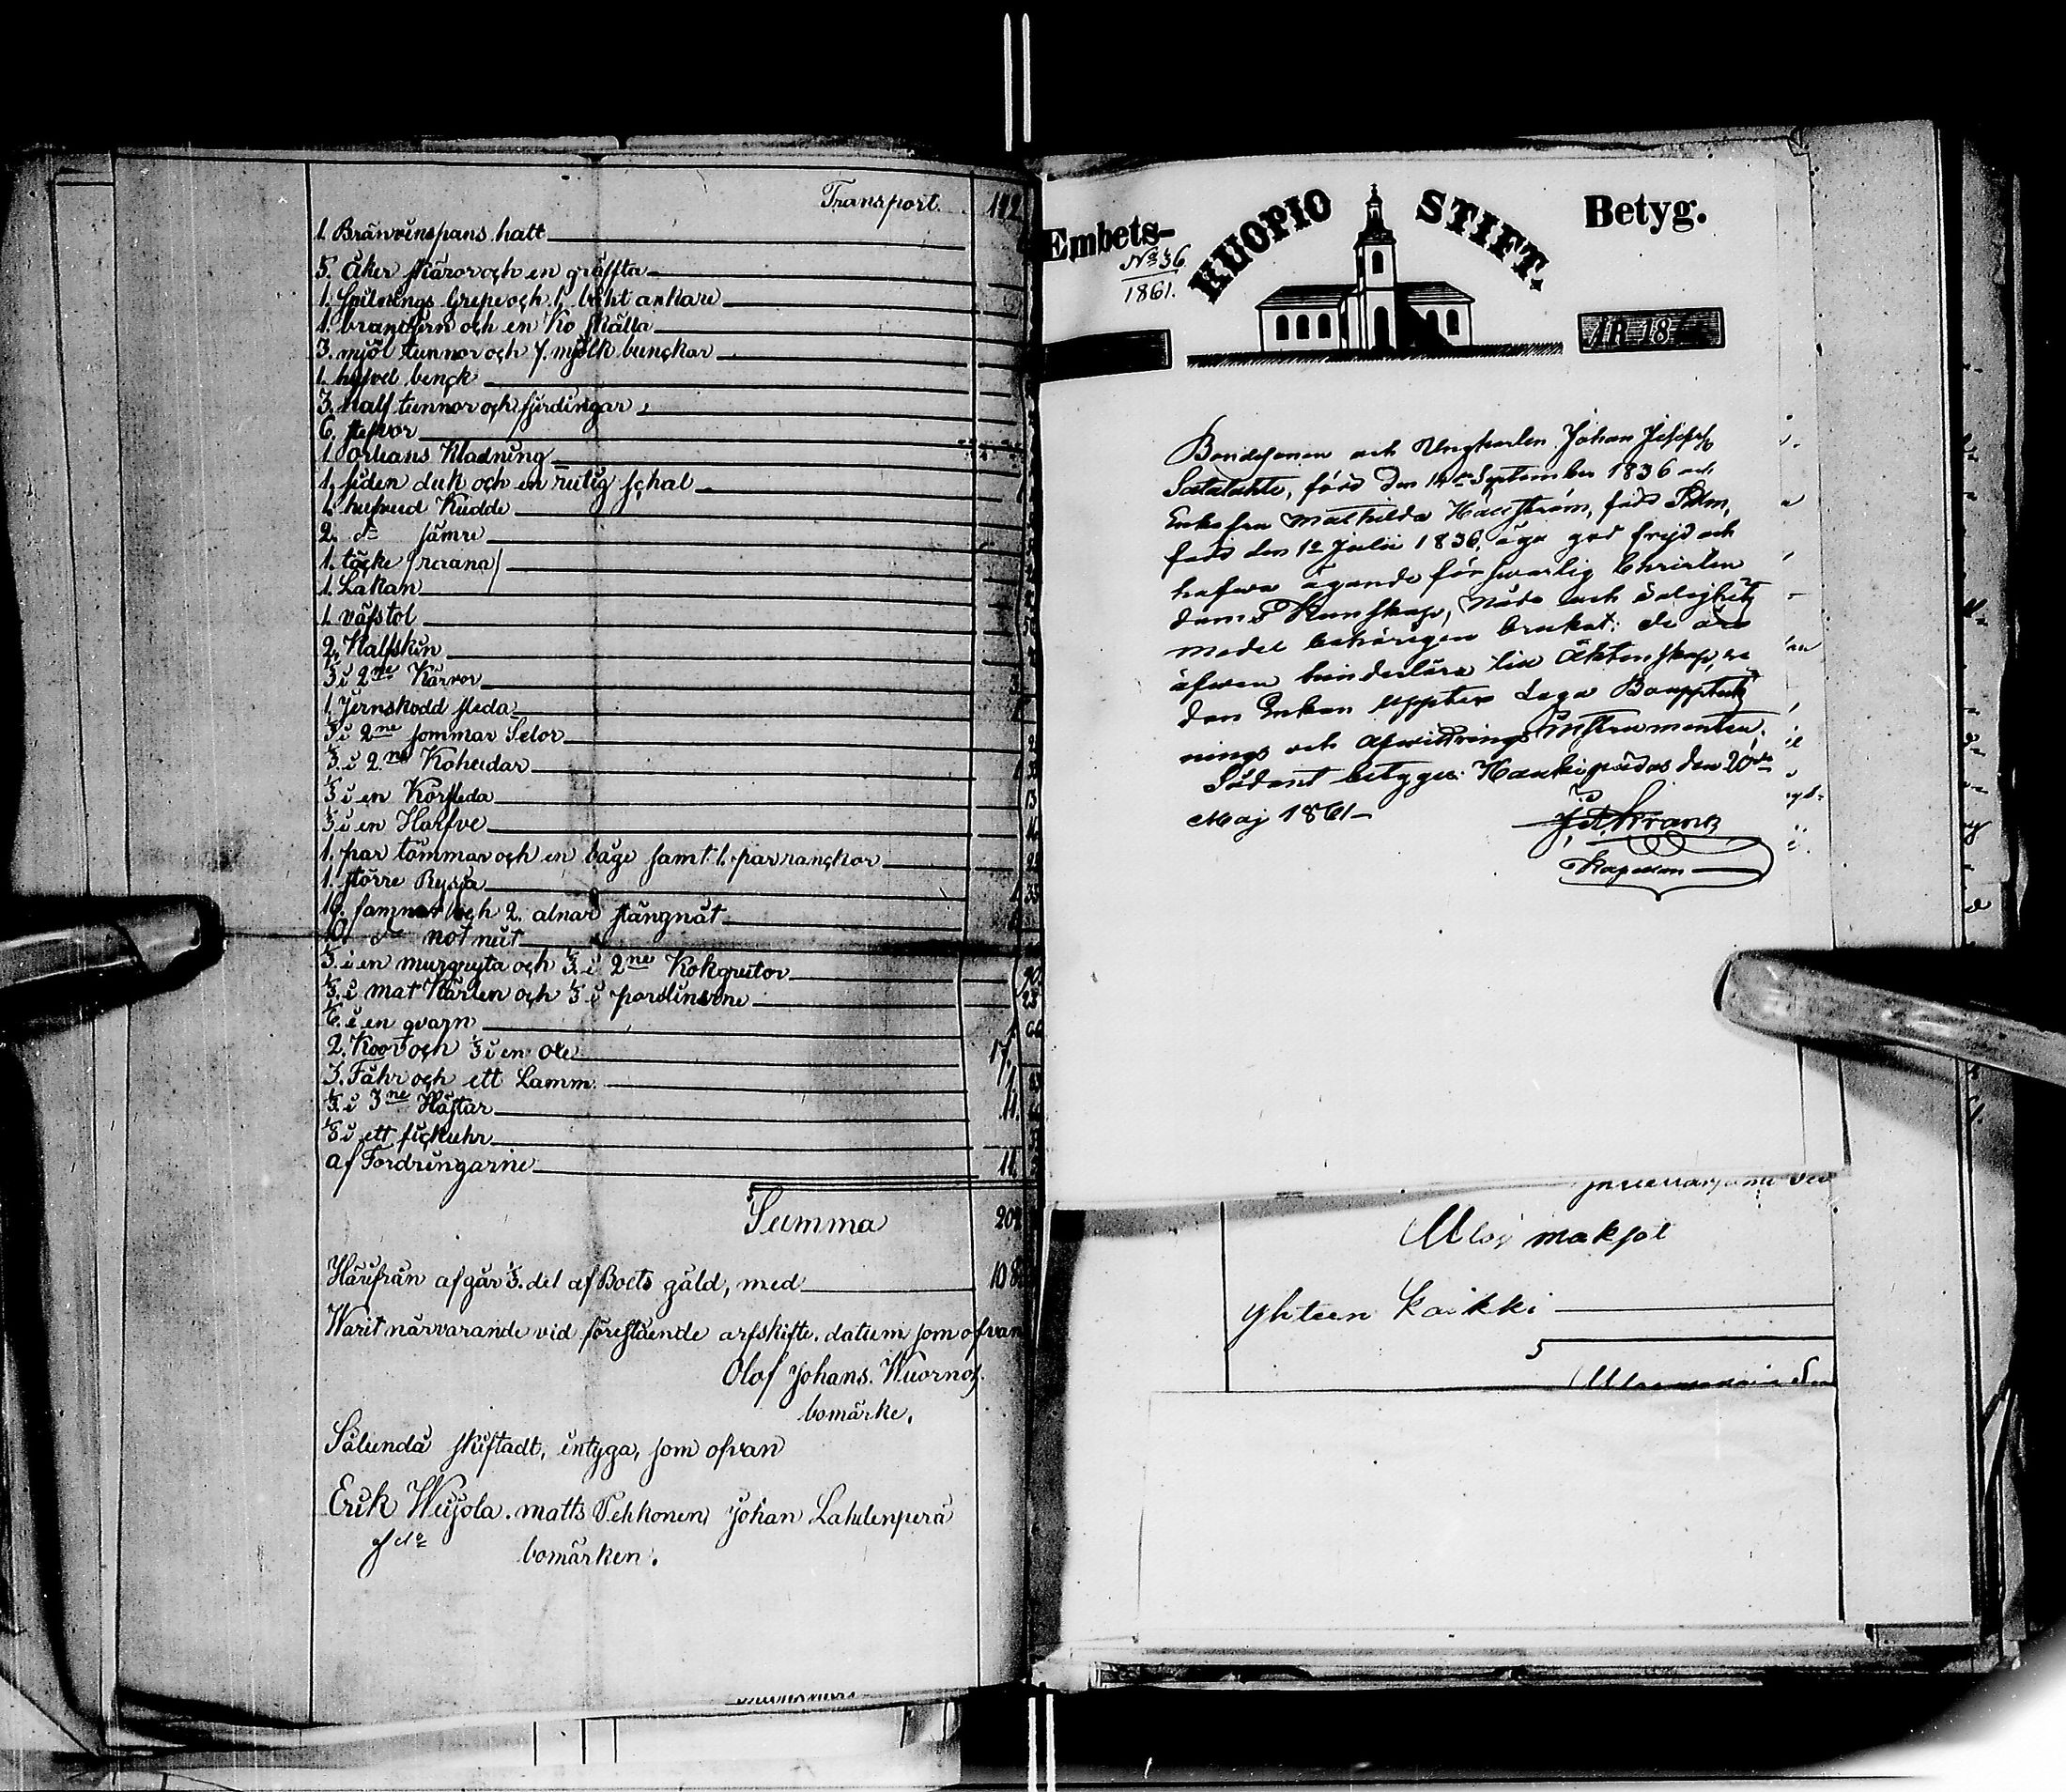 Transport. 192
1. Bränvinspans hatt
5. åker skäror och en gräffta
1. Spilnings Grepe och 1. bökt ankare
1. brandjern och en Ko skälla
3. mjöl tunnor och 7. mjölk bunckar
1. hyfvel benck
3. half tunnor och fjerdingar
6. stefvor
1. orleans Kladning
1. siden duk och en rutig schal
1. hufvud Kudde
2. do sämre
1. täcke (raana)
1. Lakan
1. väfstol
2. Kalfskin
⅓ i 2ne Kärror
1. Jernskodd släda
⅓ i 2ne sommar Selor
⅓ i 2ne Kohudar
⅓ i en Körsleda
⅓ i en Harfve
1. par tömmar och en båge samt 1. par ranckor
1. större Ryssja
10. famnar och 2. alnar stångnät
10. do notnät
⅓ i en murgryta och ⅓ i 2ne Kokgrytor
⅓ i mat Kärlen och ⅓ i porslinerne
⅙ i en qvarn
2. Koor och ⅓ i en Oxe 17.
3. Fåhr och ett Lamm 1
⅓ i 3ne Hästar 11.
⅛ i ett fickuhr
af Fordringarne 11.
Summa 209
Härifrån afgår ⅓ del af Boets gäld, med 108
Warit närvarande vid förestående arfskifte. datum som ofvan
Olof Johans. Wuornos.
bomärke.
Sålunda skiftadt, intyga, som ofvan
Erik Wujola. matts Pekkonen Johan Lahdenperä
bomärken.
Embets- KUOPIO STIFT. Betyg.
No 36
1861.
ÅR 18
Bondesonen och Ungkarlen Johan Josefss
Satalahti, född den 14de September 1836 och
Enkefru Mathilda Hauström, född
född den 12 Julii 1836, äga god frejd och
hafwa ägande förswarlig Christen
doms Kunskap, Nåde och salighets
medel behörigen brukat; de äro
äfwen hinderlösa till Äktenskap, se
dan Enkan uppter Laga Boupptek
nings och Afwittrings Instrumenter.
Sådant betygar. Haukipudas den 20de
Maj 1861
Kapellan
Ulos maksot
yhteen kaikki